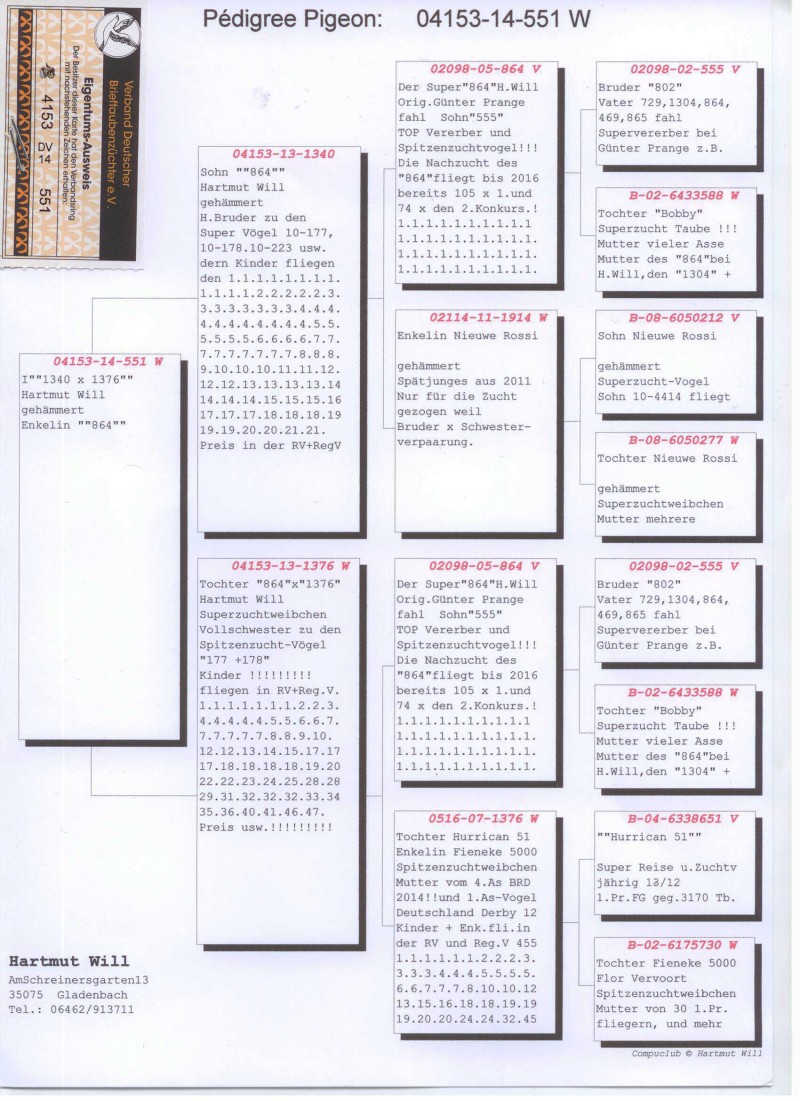 Pédigree Pigeon: 04153-14-551 W
Verband Deutscher
Brieftaubenzüchter e.V.
Eigentums-Ausweis
Der Besitzer dieser Karte hat den Verbandsring
mit nachstehenden Zeichen erhalten:
4153 DV 14 551
04153-14-551 W
I""1340 x 1376""
Hartmut Will
gehämmert
Enkelin ""864""
04153-13-1340
Sohn ""864""
Hartmut Will
gehämmert
H.Bruder zu den
Super Vögel 10-177,
10-178.10-223 usw.
dern Kinder fliegen
den 1.1.1.1.1.1.1.1.
1.1.1.1.2.2.2.2.2.3.
3.3.3.3.3.3.3.4.4.4.
4.4.4.4.4.4.4.4.5.5.
5.5.5.5.6.6.6.6.7.7.
7.7.7.7.7.7.7.8.8.8.
9.10.10.10.11.11.12.
12.12.13.13.13.13.14
14.14.14.15.15.15.16
17.17.17.18.18.18.19
19.19.20.20.21.21.
Preis in der RV+RegV
04153-13-1376 W
Tochter "864"x"1376"
Hartmut Will
Superzuchtweibchen
Vollschwester zu den
Spitzenzucht-Vögel
"177 +178"
Kinder !!!!!!!!!
fliegen in RV+Reg.V.
1.1.1.1.1.1.1.2.2.3.
4.4.4.4.4.5.5.6.6.7.
7.7.7.7.7.8.8.9.10.
12.12.13.14.15.17.17
17.18.18.18.18.19.20
22.22.23.24.25.28.28
29.31.32.32.32.33.34
35.36.40.41.46.47.
Preis usw.!!!!!!!!!
02098-05-864 V
Der Super"864"H.Will
Orig.Günter Prange
fahl Sohn"555"
TOP Vererber und
Spitzenzuchtvogel!!!
Die Nachzucht des
"864"fliegt bis 2016
bereits 105 x 1.und
74 x den 2.Konkurs.!
1.1.1.1.1.1.1.1.1.1
1.1.1.1.1.1.1.1.1.1.
1.1.1.1.1.1.1.1.1.1.
1.1.1.1.1.1.1.1.1.1.
02114-11-1914 W
Enkelin Nieuwe Rossi
gehämmert
Spätjunges aus 2011
Nur für die Zucht
gezogen weil
Bruder x Schwester-
verpaarung.
02098-05-864 V
Der Super"864"H.Will
Orig.Günter Prange
fahl Sohn"555"
TOP Vererber und
Spitzenzuchtvogel!!!
Die Nachzucht des
"864"fliegt bis 2016
bereits 105 x 1.und
74 x den 2.Konkurs.!
1.1.1.1.1.1.1.1.1.1
1.1.1.1.1.1.1.1.1.1.
1.1.1.1.1.1.1.1.1.1.
1.1.1.1.1.1.1.1.1.1.
0516-07-1376 W
Tochter Hurrican 51
Enkelin Fieneke 5000
Spitzenzuchtweibchen
Mutter vom 4.As BRD
2014!!und 1.As-Vogel
Deutschland Derby 12
Kinder + Enk.fli.in
der RV und Reg.V 455
1.1.1.1.1.1.2.2.2.3.
3.3.3.4.4.4.5.5.5.5.
6.6.7.7.7.8.10.10.12
13.15.16.18.18.19.19
19.20.20.24.24.32.45
02098-02-555 V
Bruder "802"
Vater 729,1304,864,
469,865 fahl
Supervererber bei
Günter Prange z.B.
B-02-6433588 W
Tochter "Bobby"
Superzucht Taube !!!
Mutter vieler Asse
Mutter des "864"bei
H.Will,den "1304" +
B-08-6050212 V
Sohn Nieuwe Rossi
gehämmert
Superzucht-Vogel
Sohn 10-4414 fliegt
B-08-6050277 W
Tochter Nieuwe Rossi
gehämmert
Superzuchtweibchen
Mutter mehrere
02098-02-555 V
Bruder "802"
Vater 729,1304,864,
469,865 fahl
Supervererber bei
Günter Prange z.B.
B-02-6433588 W
Tochter "Bobby"
Superzucht Taube !!!
Mutter vieler Asse
Mutter des "864"bei
H.Will,den "1304" +
B-04-6338651 V
""Hurrican 51""
Super Reise u.Zuchtv
jährig 13/12
1.Pr.FG geg.3170 Tb.
B-02-6175730 W
Tochter Fieneke 5000
Flor Vervoort
Spitzenzuchtweibchen
Mutter von 30 1.Pr.
fliegern, und mehr
Hartmut Will
AmSchreinersgarten13
35075 Gladenbach
Tel.: 06462/913711
Compuclub © Hartmut Will